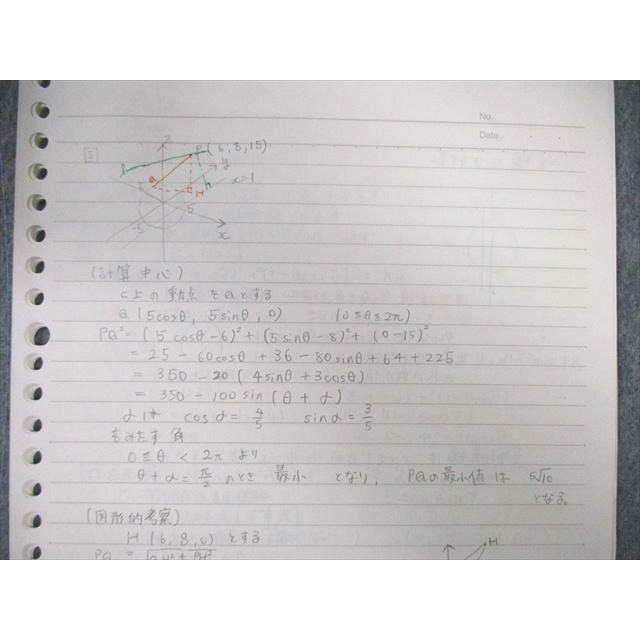 No.
Date
3
z
P(6,8,15)
l
y
Q
x=1
H
h
5
-5
x
(計算中心)
C上の動点をQとする
Q(5cosθ, 5sinθ, 0) (0≦θ≦2π)
PQ²=(5cosθ-6)²+(5sinθ-8)²+(0-15)²
=25-60cosθ+36-80sinθ+64+225
=350-20(4sinθ+3cosθ)
=350-100sin(θ+α)
αは cosα=4/5 sinα=3/5
をみたす角
0≦θ<2πより
θ+α=π/2のとき 最小 となり, PQの最小値は 5√10
となる。
(図形的考察)
H(6,8,0)とする
PQ=√QH²+PH²
H